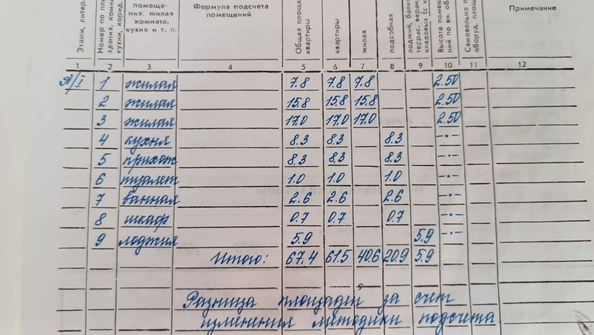 Этажи, литер
Номер по пл
здания, комн
кухни, корид.
помеще-
ния: жилая
комната,
кухня и т. п.
Формула подсчета
помещений
Общая площа
квартиры
квартиры
жилая
подсобная
лоджий, балк
террас, веран
кладовых (с к
Высота помещ
ний по вн. об
Самовольно п
оборуд. площ
Примечание
1 2 3 4 5 6 7 8 9 10 11 12
А/I 1 жилая 7.8 7.8 7.8 2.50
2 жилая 15.8 15.8 15.8 2.50
3 жилая 17.0 17.0 17.0 2.50
4 кухня 8.3 8.3 8.3 -"-
5 прихож 8.3 8.3 8.3 -"-
6 туалет 1.0 1.0 1.0 -"-
7 ванная 2.6 2.6 2.6 -"-
8 шкаф 0.7 0.7 0.7 -"-
9 лоджия 5.9 5.9 -"-
Итого: 67.4 61.5 40.6 20.9 5.9
Разница площадей за счет
изменения методики подсчета